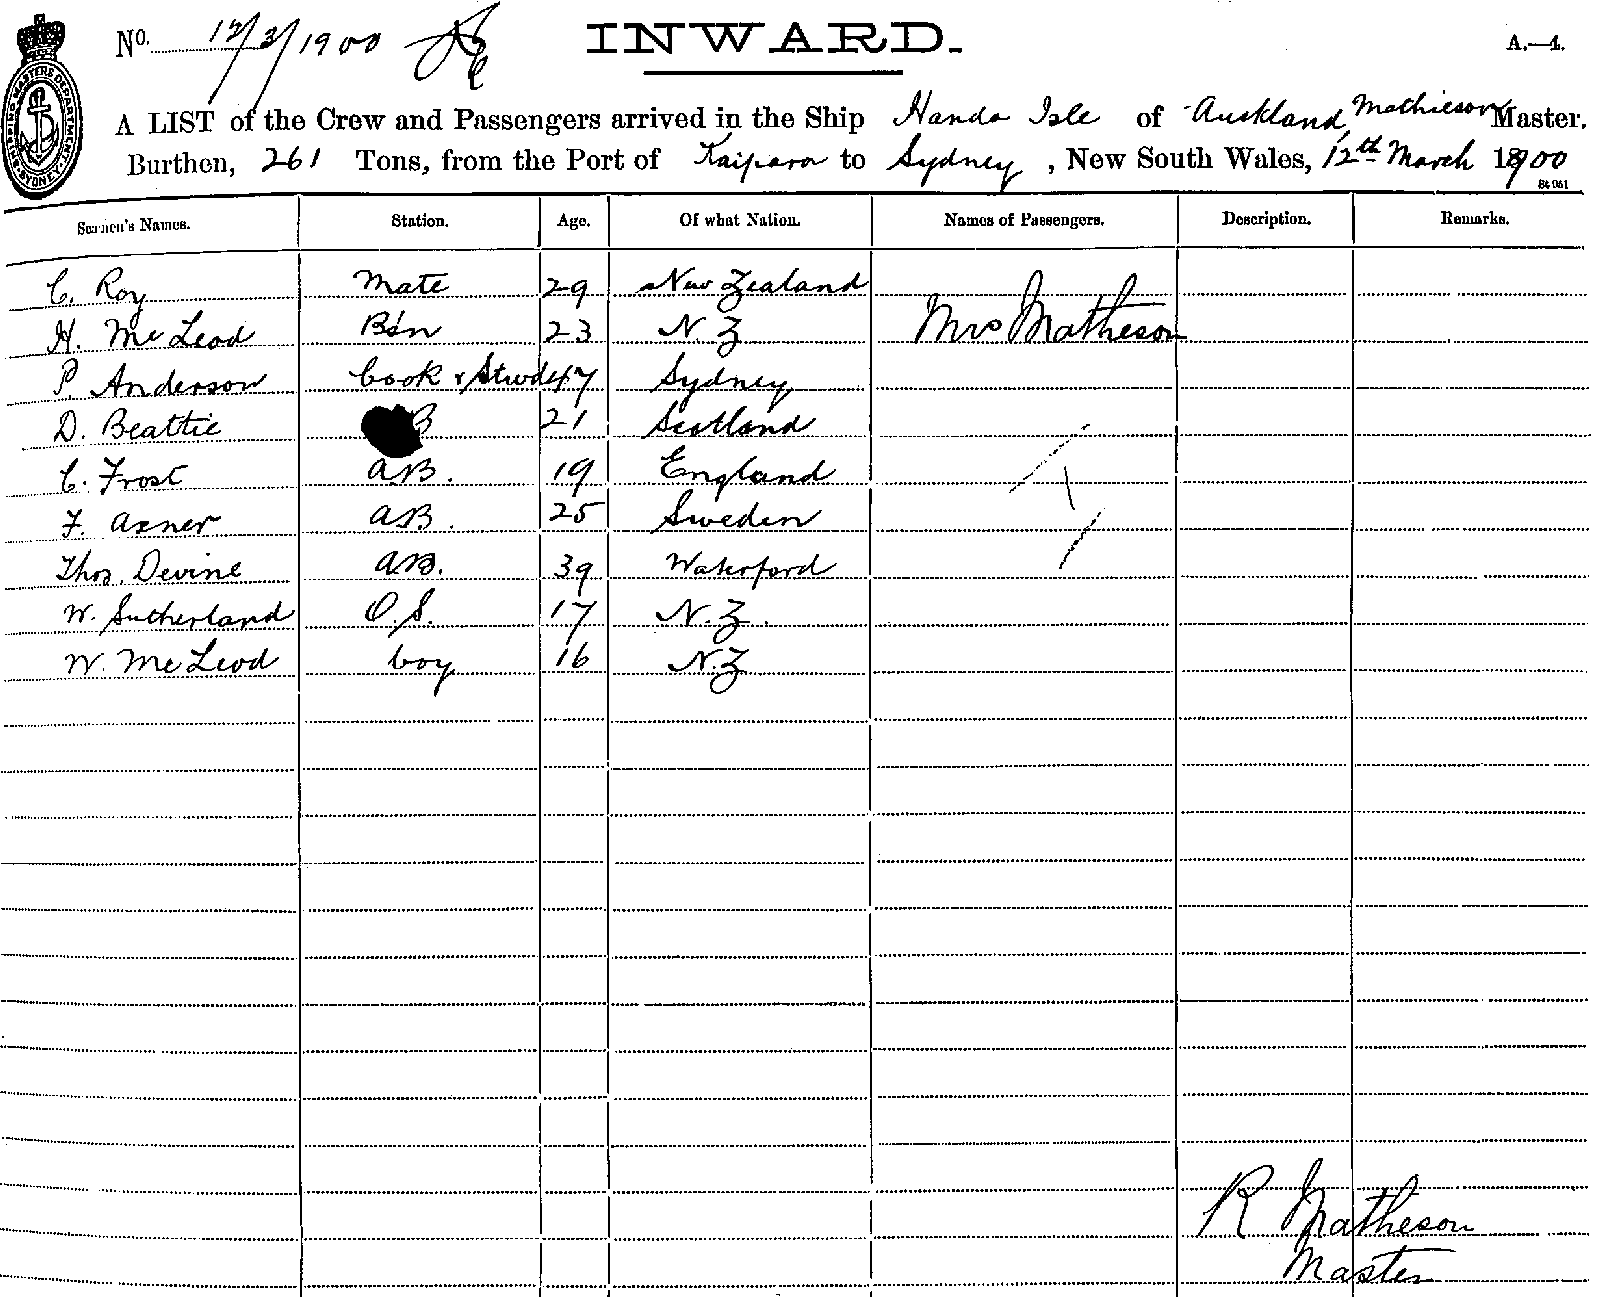 No. 12/3/1900
INWARD.
A.—4.
A LIST of the Crew and Passengers arrived in the Ship Handa Isle of Auckland Mathieson Master,
Burthen, 261 Tons, from the Port of Kaipara to Sydney, New South Wales, 12th March 1900
SHIPPING MASTERS DEPARTMENT SYDNEY
Seamen's Names. Station. Age. Of what Nation. Names of Passengers. Description. Remarks.
C. Roy Mate 29 New Zealand
H. McLeod Bsn 23 N.Z Mrs Matheson
P. Anderson Cook & Stwd 47 Sydney
D. Beattie B 21 Scotland
C. Frost AB. 19 England
F. Axner AB. 25 Sweden
Thos. Devine AB. 39 Waterford
W. Sutherland O.S. 17 N.Z.
W. McLeod boy 16 N.Z
R Matheson
Master